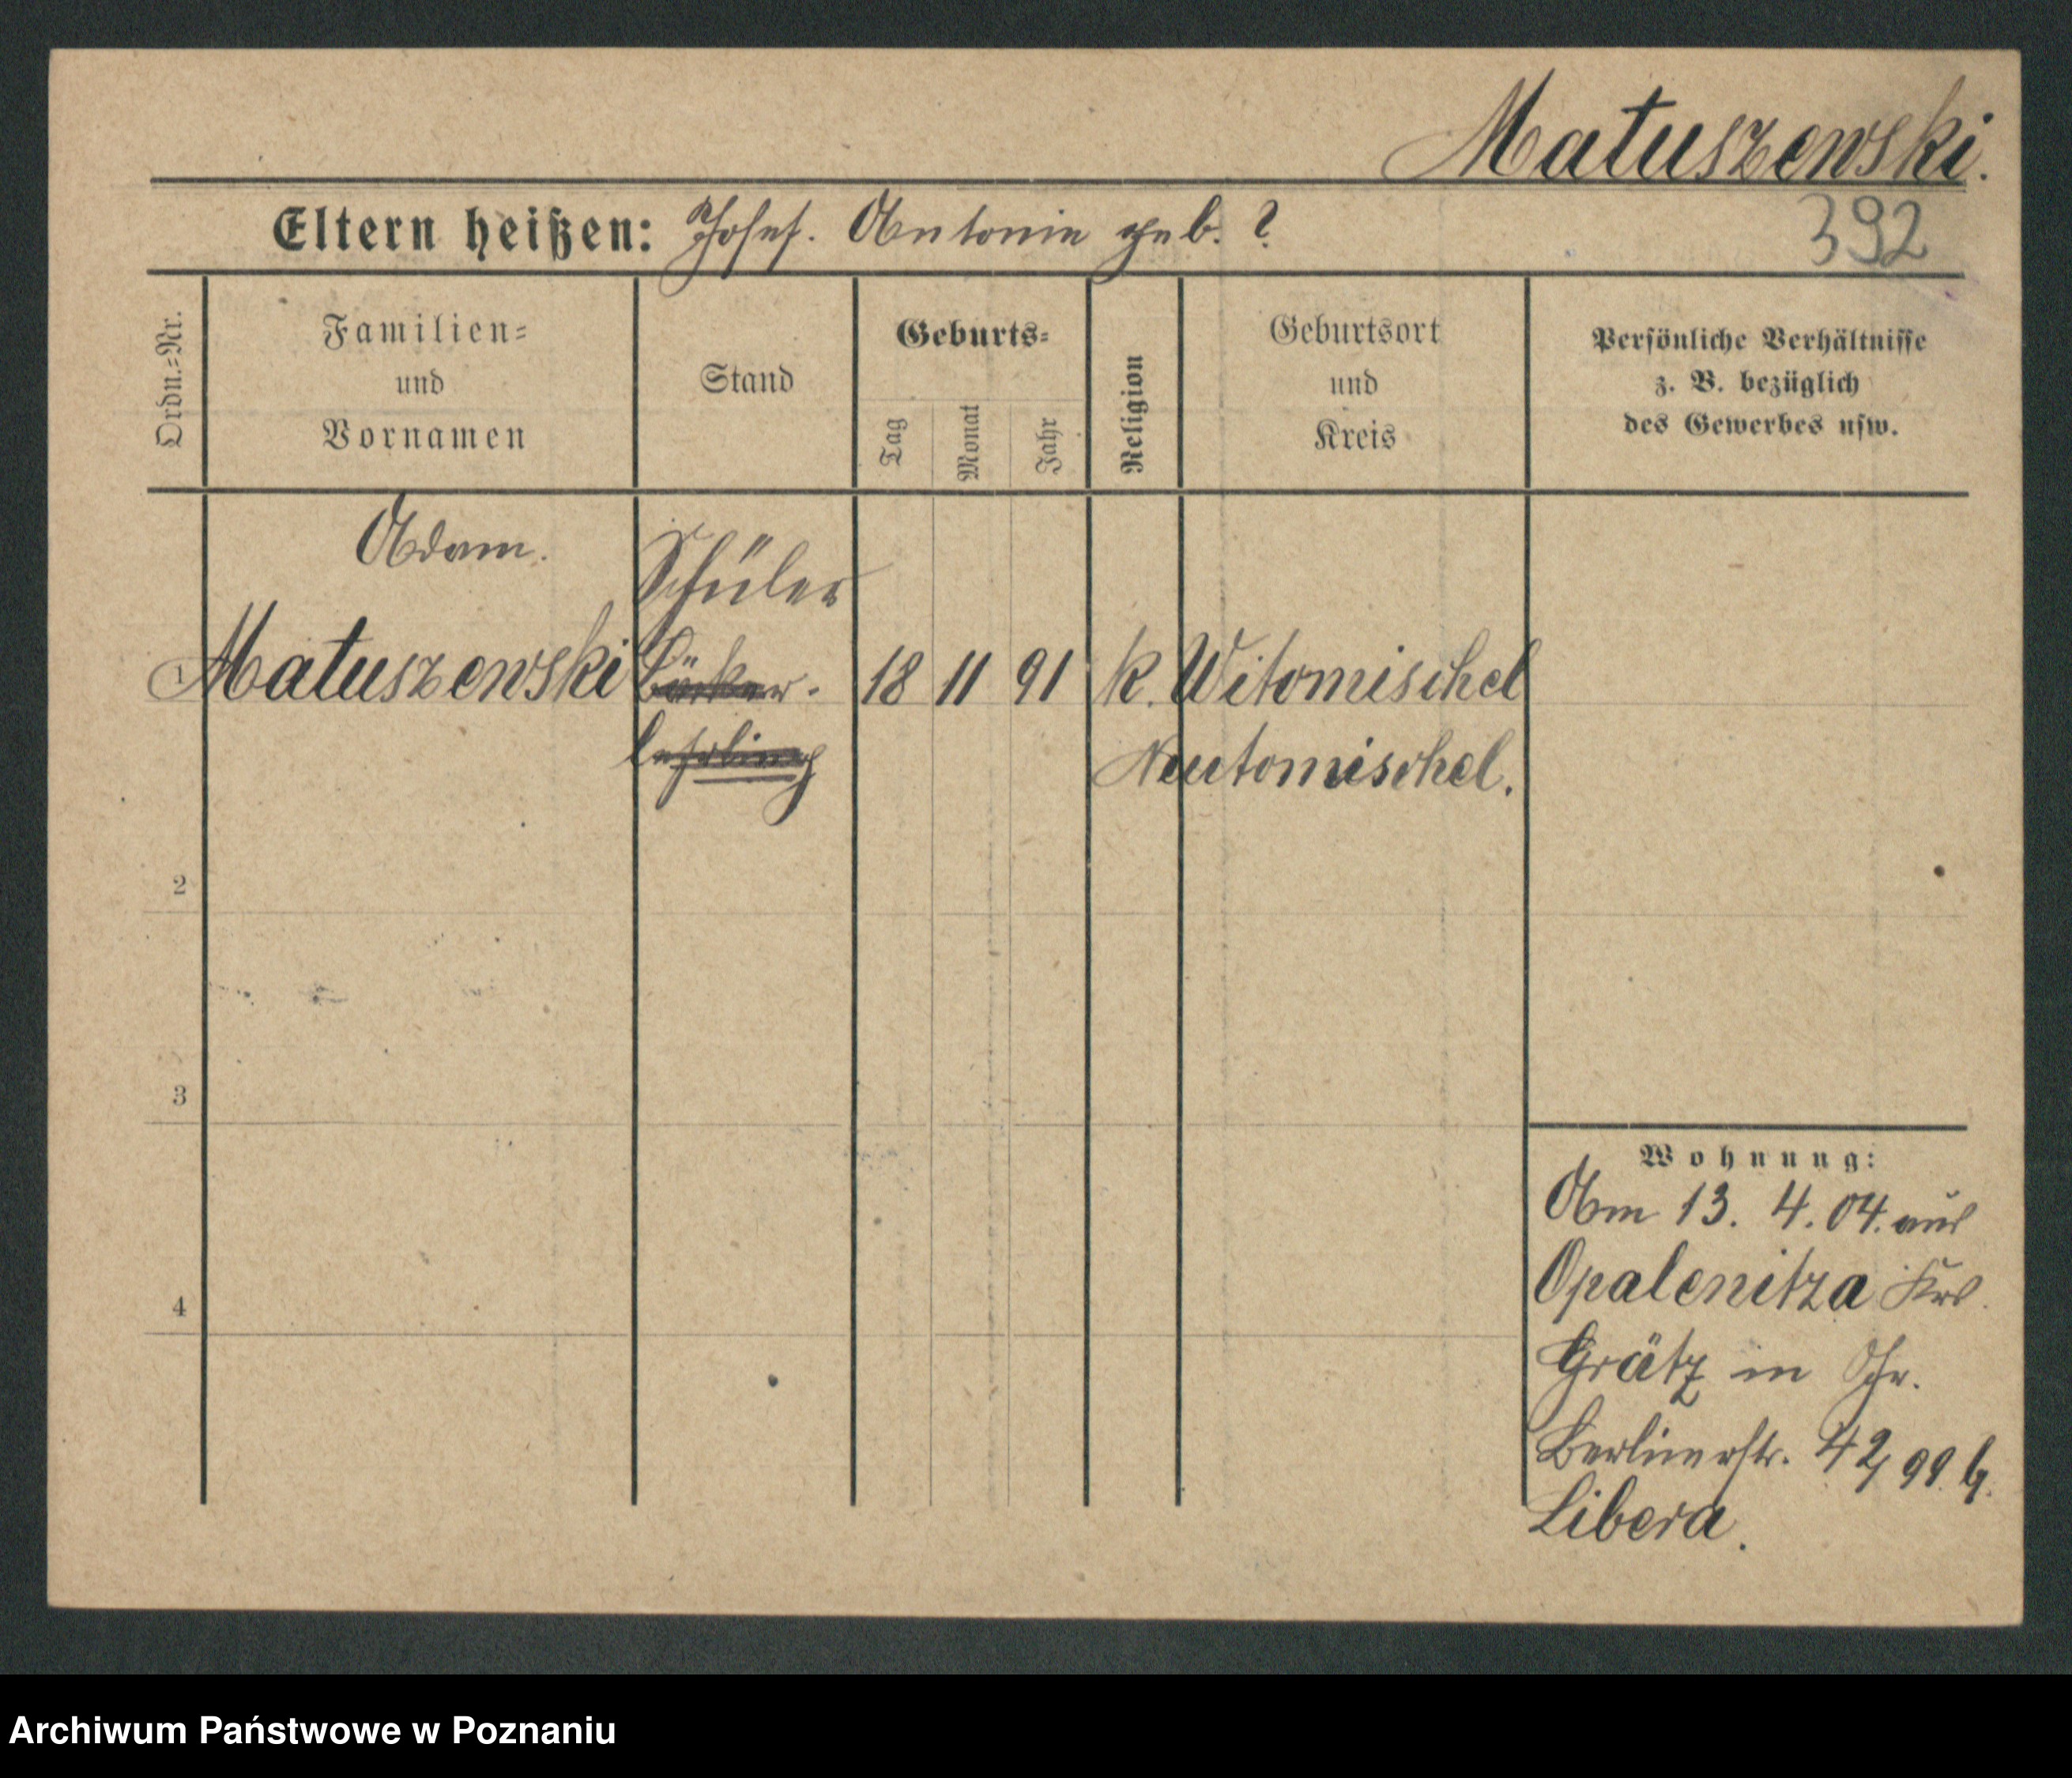 Matuszewski.
Eltern heißen: Josef. Antonie geb. ?
392
Ordn.=Nr.
Familien=
und
Vornamen
Stand
Geburts=
Tag
Monat
Jahr
Religion
Geburtsort
und
Kreis
Persönliche Verhältnisse
z. B. bezüglich
des Gewerbes usw.
Adam.
Schüler
1 Matuszewski Bäcker- 18 11 91 k. Witomischel
lehrling Neutomischel.
2
3
4
Wohnung:
Am 13. 4. 04. aus
Opalenitza Krs.
Grätz in
Berlinerstr. 42, b.
Libera.
Archiwum Państwowe w Poznaniu